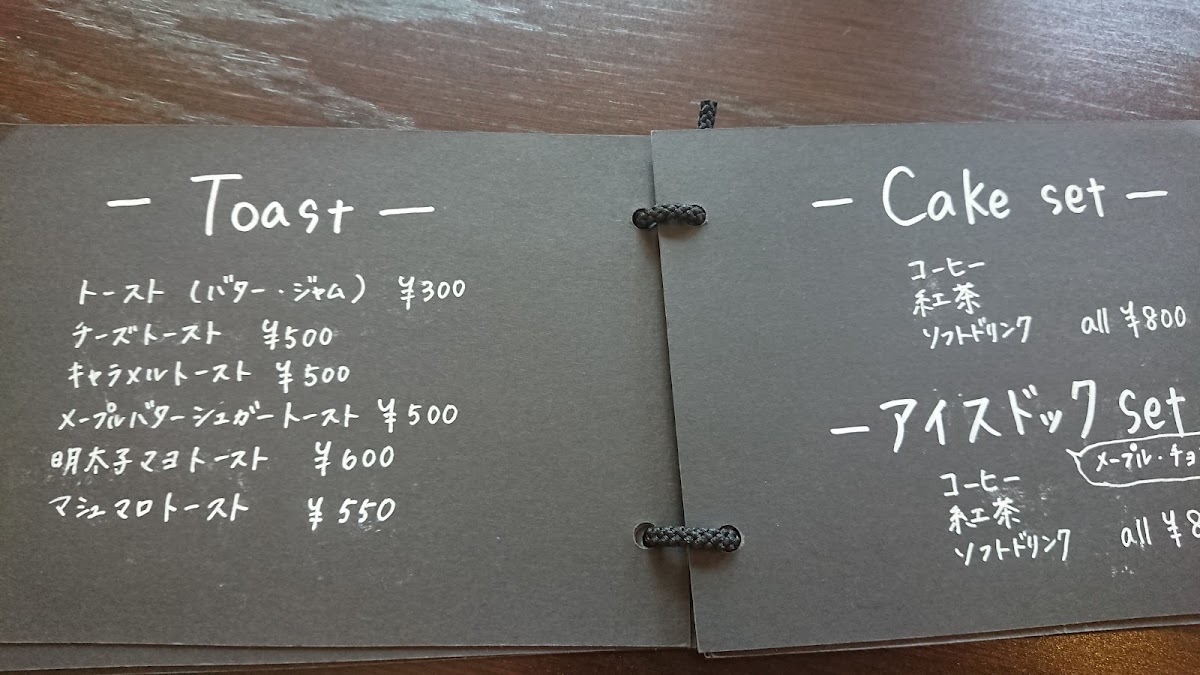 - Toast -
トースト (バター・ジャム) ¥300
チーズトースト ¥500
キャラメルトースト ¥500
メープルバターシュガートースト ¥500
明太子マヨトースト ¥600
マシュマロトースト ¥550
- Cake set -
コーヒー
紅茶
ソフトドリンク all ¥800
- アイスドック set
メープル・チョ
コーヒー
紅茶
ソフトドリンク all ¥8